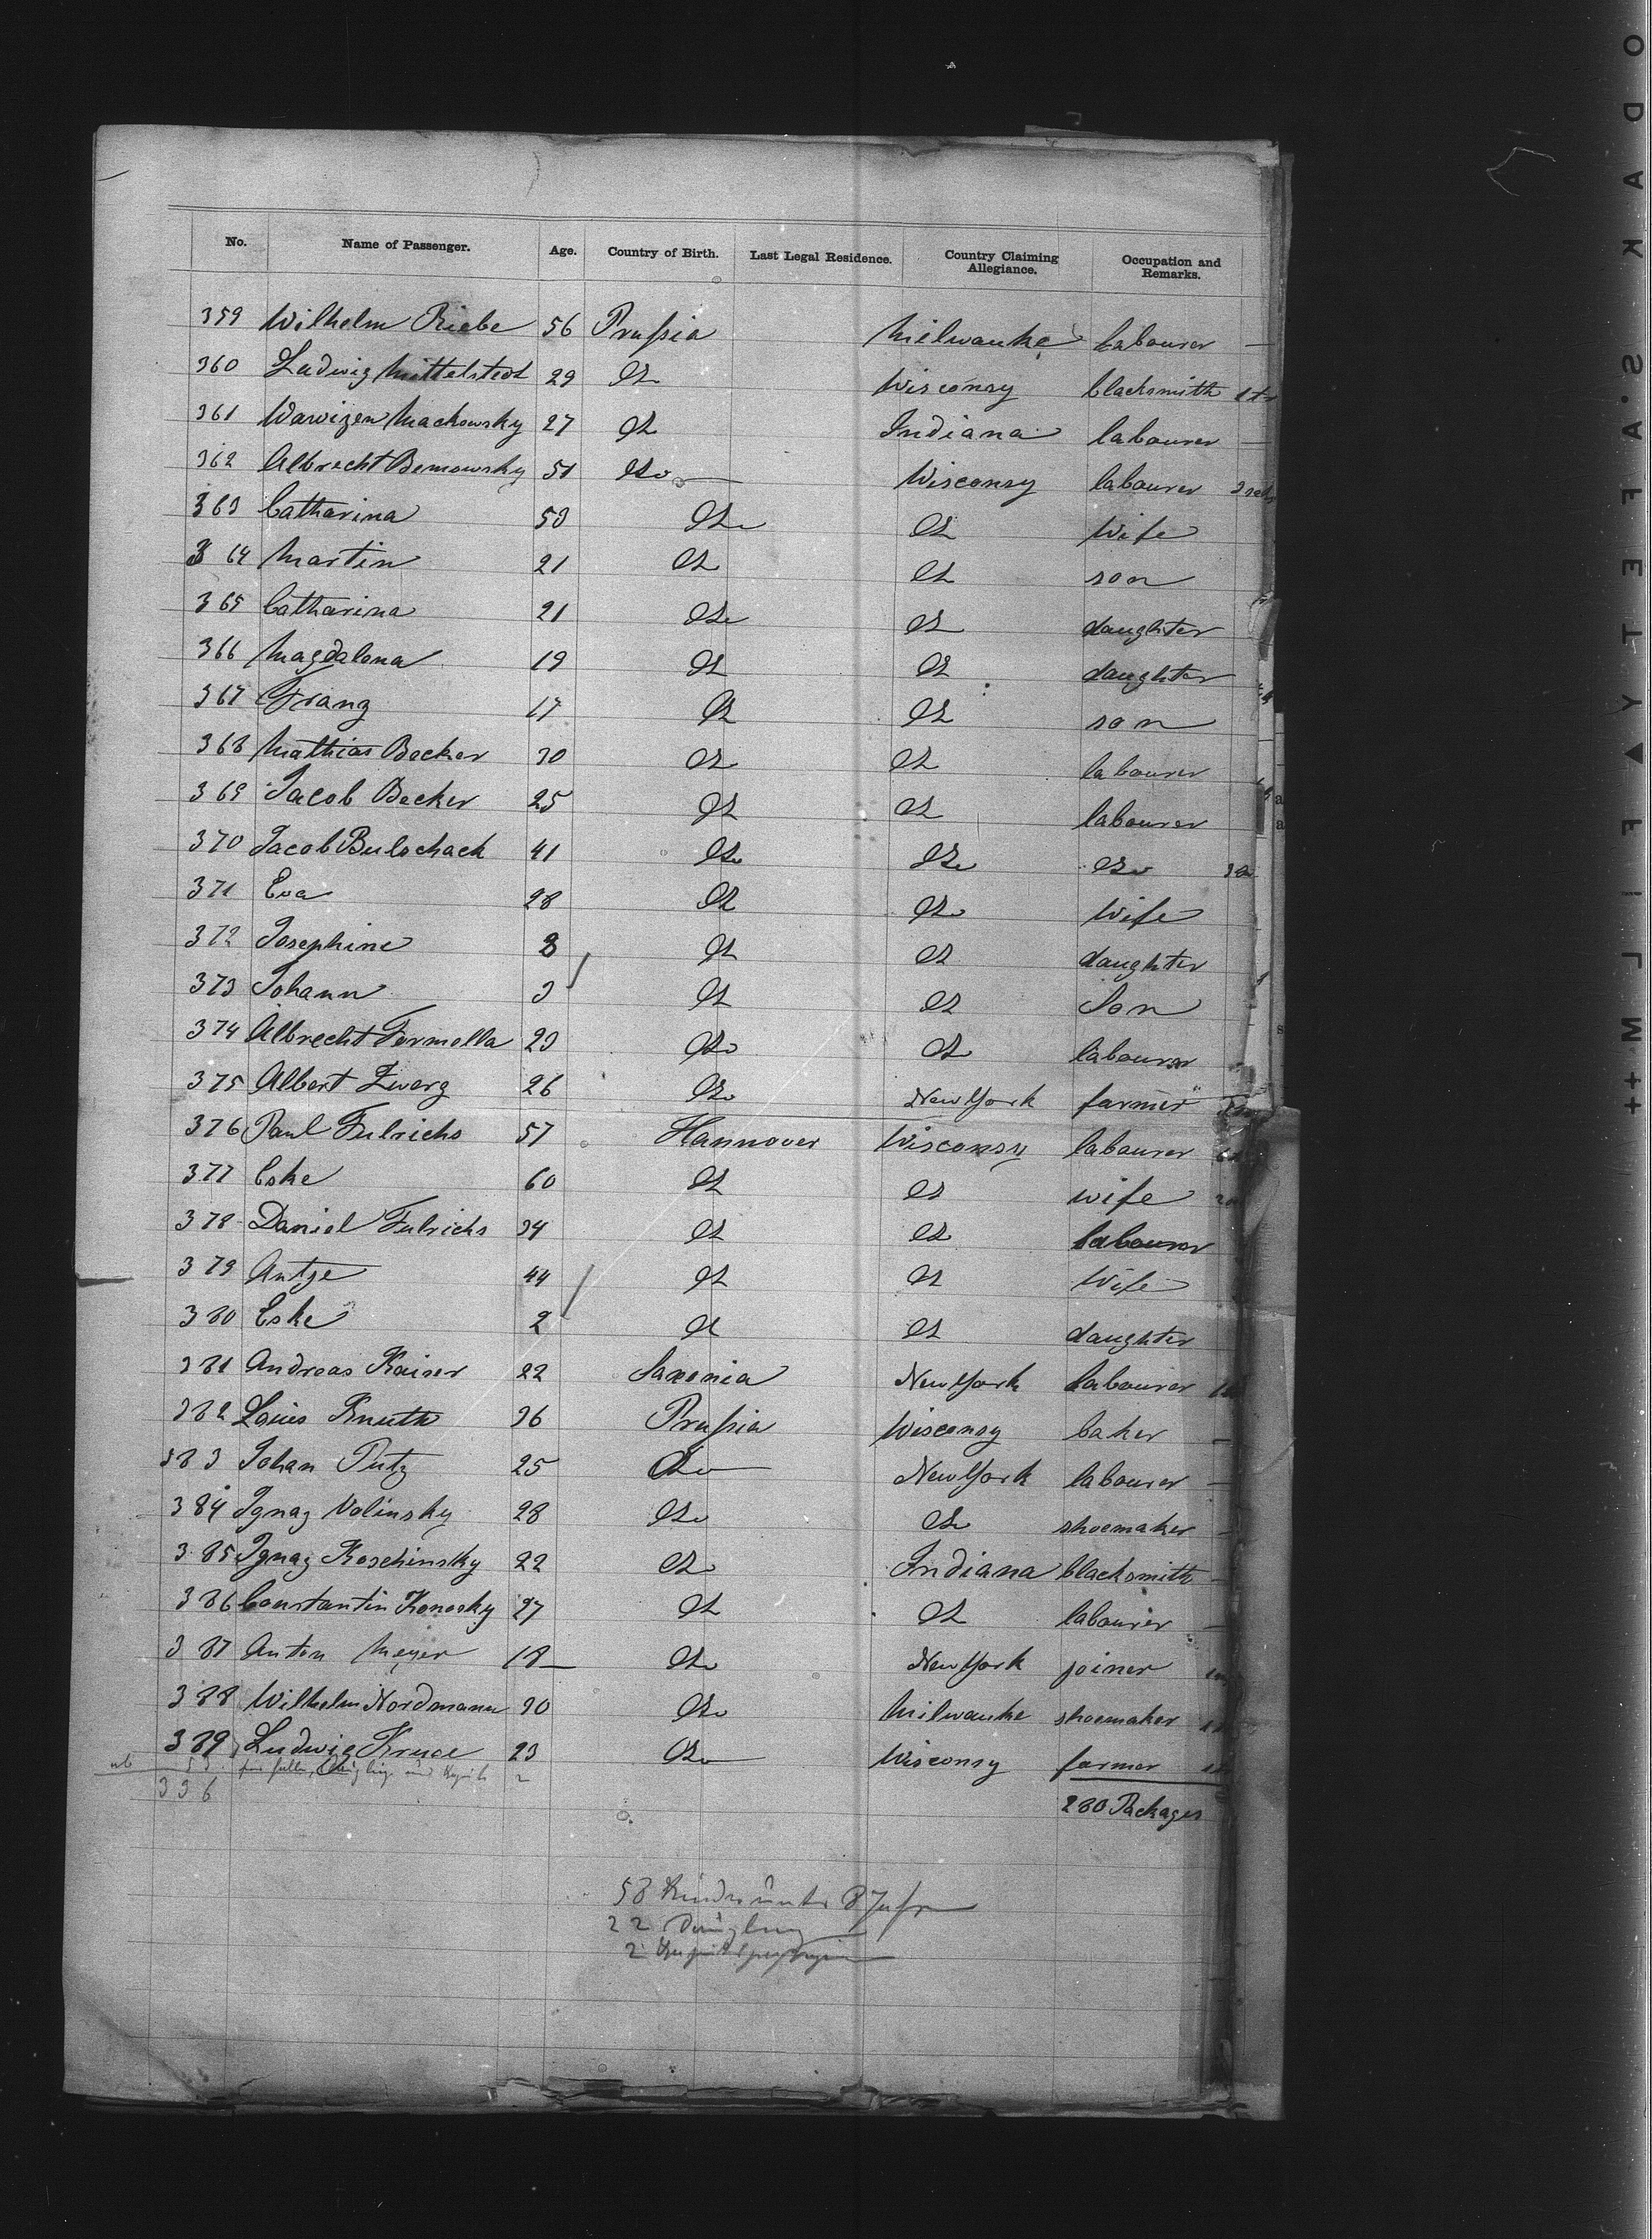 No. Name of Passenger. Age. Country of Birth. Last Legal Residence. Country Claiming Allegiance. Occupation and Remarks.
359 Wilhelm Riebe 56 Prussia Milwauke labourer —
360 Ludwig Mittelstedt 29 do Wisconsy blacksmith
361 Wawizen Mackowsky 27 do Indiana labourer —
362 Albrecht Bemowsky 51 do Wisconsy labourer
363 Catharina 53 do do wife
364 Martin 21 do do son
365 Catharina 21 do do daughter
366 Magdalena 19 do do daughter
367 Franz 17 do do son
368 Mathias Becker 30 do do labourer
369 Jacob Becker 25 do do labourer
370 Jacob Bulschack 41 do do do
371 Eva 28 do do wife
372 Josephine 8 do do daughter
373 Johann 3 do do Son
374 Albrecht Formella 23 do do labourer
375 Albert Zwerg 26 do New York farmer
376 Paul Fulrichs 57 Hannover Wisconsy labourer
377 Eske 60 do do wife
378 Daniel Fulrichs 34 do do labourer
379 Antje 44 do do wife
380 Eske 2 do do daughter
381 Andreas Kaiser 22 Saxonia New York labourer
382 Louis Knuth 36 Prussia Wisconsy baker —
383 Johan Putz 25 do New York labourer —
384 Ignaz Volinsky 28 do do shoemaker —
385 Ignaz Koschinsky 22 do Indiana blacksmith —
386 Constantin Konosky 27 do do labourer —
387 Anton Meyer 18 do New York joiner
388 Wilhelm Nordmann 30 do Milwauke shoemaker
389 Ludwig Kruse 23 do Wisconsy farmer
ab 53
336
280 Packages
53 Kinder unter 8 Jahr
22 Säugling
2
SAFETY ▲ FILM
KODAK